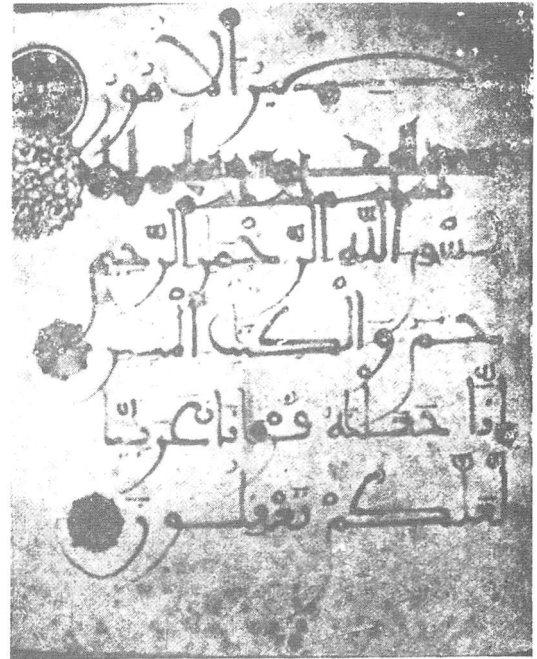 تصير الأمور
بِسْمِ اللَّهِ الرَّحْمٰنِ الرَّحِيمِ
حم وَالْكِتَبِ الْمُبِينِ
إِنَّا جَعَلْنَهُ قُرْءَانًا عَرَبِيًّا
لَّعَلَّكُمْ تَعْقِلُونَ